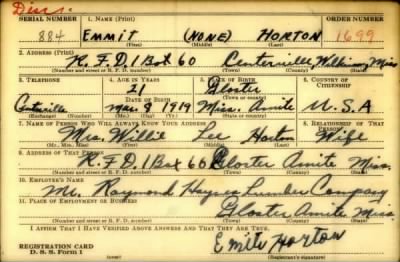 Disc.
SERIAL NUMBER 1. NAME (Print) ORDER NUMBER
884 EMMIT (NONE) HORTON 1699
(First) (Middle) (Last)
2. ADDRESS (Print)
R.F.D. 1 Box 60 Centerville, Wilkinson, Miss
(Number and street or R. F. D. number) (Town) (County) (State)
3. TELEPHONE 4. AGE IN YEARS 5. PLACE OF BIRTH 6. COUNTRY OF CITIZENSHIP
21 Gloster
DATE OF BIRTH
Centerville Mar. 8, 1919 Miss. Amite U.S.A
(Exchange) (Number) (Mo.) (Day) (Yr.) (State or country)
7. NAME OF PERSON WHO WILL ALWAYS KNOW YOUR ADDRESS 8. RELATIONSHIP OF THAT PERSON
Mrs. Willie Lee Horton Wife
(Mr., Mrs., Miss) (First) (Middle) (Last)
9. ADDRESS OF THAT PERSON
R.F.D. 1 Box 60 Gloster Amite Miss.
(Number and street or R. F. D. number) (Town) (County) (State)
10. EMPLOYER'S NAME
Mr. Raymond Haynes Lumber Company
11. PLACE OF EMPLOYMENT OR BUSINESS
Gloster Amite Miss.
(Number and street or R. F. D. number) (Town) (County) (State)
I AFFIRM THAT I HAVE VERIFIED ABOVE ANSWERS AND THAT THEY ARE TRUE.
REGISTRATION CARD
D. S. S. Form 1
Emitt Horton
(Registrant's signature)